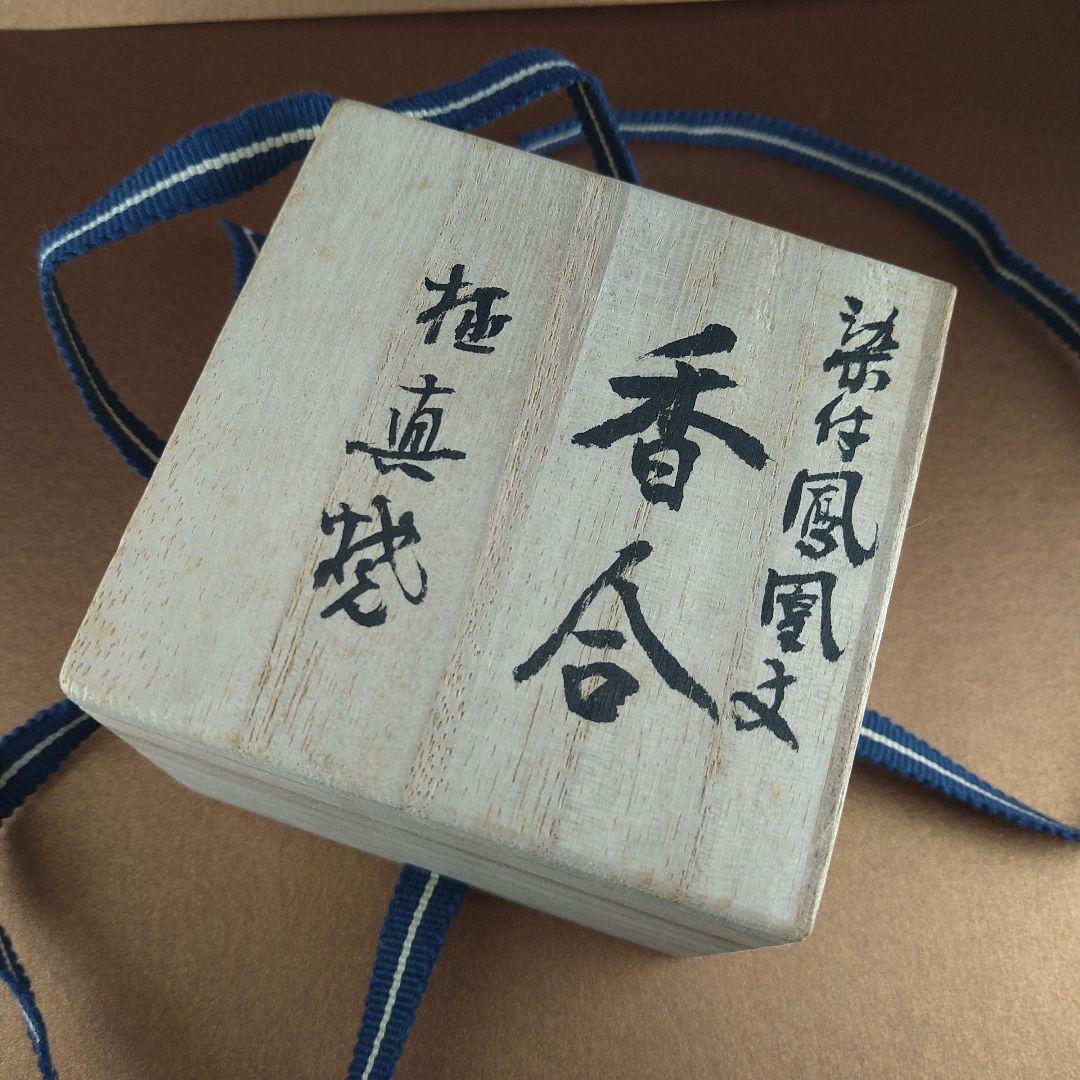 染付鳳凰文
香合
真